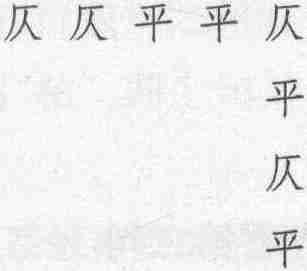 仄仄平平仄
平
仄
平